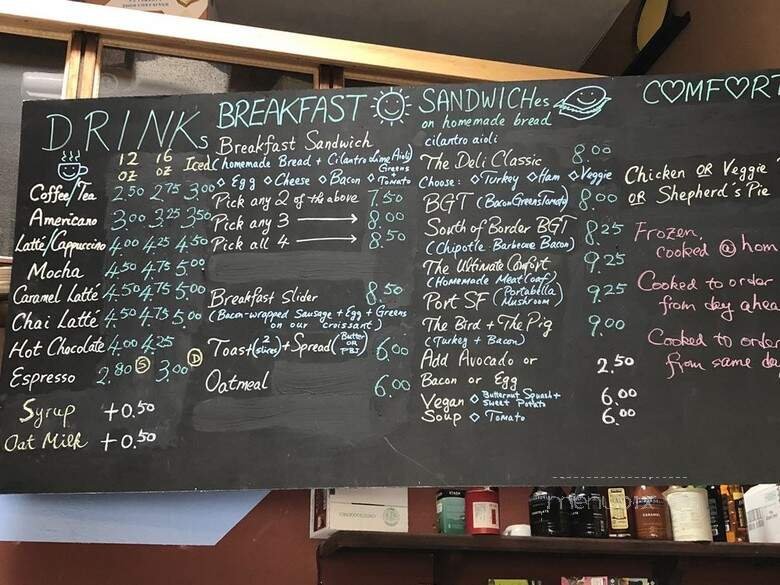 DRINKs
12 OZ 16 OZ Iced
Coffee/Tea 2.50 2.75 3.00
Americano 3.00 3.25 3.50
Latté/Cappuccino 4.00 4.25 4.50
Mocha 4.50 4.75 5.00
Caramel Latté 4.50 4.75 5.00
Chai Latté 4.50 4.75 5.00
Hot Chocolate 4.00 4.25
Espresso 2.80 S 3.00 D
Syrup +0.50
Oat Milk +0.50
BREAKFAST
Breakfast Sandwich
(homemade Bread + Cilantro Lime Aioli)
Greens
◇ Egg ◇ Cheese ◇ Bacon ◇ Tomato
Pick any 2 of the above 7.50
Pick any 3 → 8.00
Pick all 4 → 8.50
Breakfast Slider 8.50
(Bacon-wrapped Sausage + Egg + Greens
on our croissant)
Toast (2 slices) + Spread (Butter OR PBJ) 6.00
Oatmeal 6.00
SANDWICHes
on homemade bread
cilantro aioli
The Deli Classic 8.00
Choose: ◇ Turkey ◇ Ham ◇ Veggie
BGT (Bacon Greens Tomato) 8.00
South of Border BGT 8.25
(Chipotle Barbecue Bacon)
The Ultimate Comfort 9.25
(Homemade Meatloaf)
Port SF (Portabella Mushroom) 9.25
The Bird + The Pig 9.00
(Turkey + Bacon)
Add Avocado or 2.50
Bacon or Egg
Vegan ◇ Butternut Squash + Sweet Potato 6.00
Soup ◇ Tomato 6.00
COMFORT
Chicken OR Veggie
OR Shepherd's Pie
Frozen,
cooked @ hom
Cooked to order
from day ahea
Cooked to order
from same da
menupix